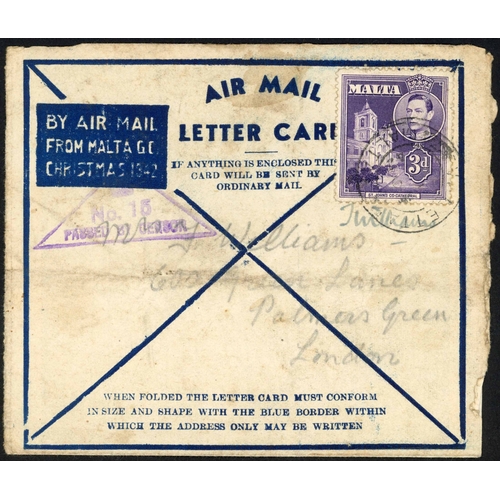 AIR MAIL
LETTER CARD
BY AIR MAIL
FROM MALTA G.C.
CHRISTMAS 1942
MALTA
3d
ST. JOHN'S CO-CATHEDRAL
IF ANYTHING IS ENCLOSED THIS
CARD WILL BE SENT BY
ORDINARY MAIL
No. 15
PASSED BY CENSOR
Williams
Green Lanes
Palmers Green
London
WHEN FOLDED THE LETTER CARD MUST CONFORM
IN SIZE AND SHAPE WITH THE BLUE BORDER WITHIN
WHICH THE ADDRESS ONLY MAY BE WRITTEN